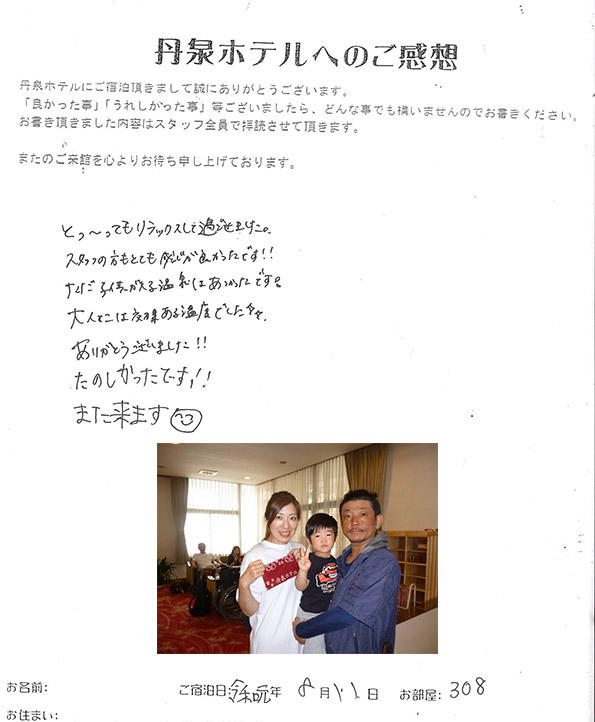 丹泉ホテルへのご感想
丹泉ホテルにご宿泊頂きまして誠にありがとうございます。
「良かった事」「うれしかった事」等ございましたら、どんな事でも構いませんのでお書きください。
お書き頂きました内容はスタッフ全員で拝読させて頂きます。
またのご来館を心よりお待ち申し上げております。
とっ〜ってもリラックスして過ごせました。
スタッフの方もとても感じが良かったです!!
ただ子供が入る温泉はあつかったです。
大人には
ある温度でした
ありがとうございました!!
たのしかったです!!
また来ます
丹泉ホテル
お名前:
ご宿泊日:令和元年 8月11日 お部屋:308
お住まい: